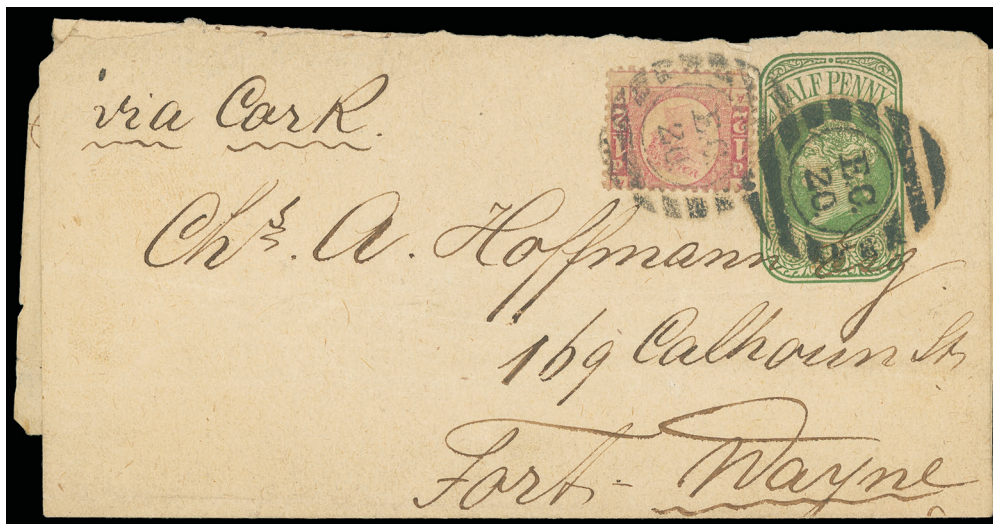 via Cork.
HALF PENNY
E.C.
20.
Chs. A. Hoffmann
169 Calhoun St
Fort-Wayne